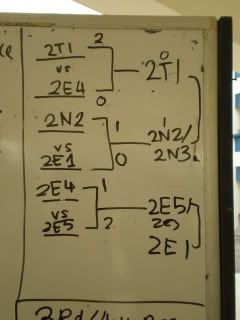 2T1 2
vs
2E4 0
2T1 0
2N2 1
vs
2E1 0
2N2/ 1
2N3
2E4 1
vs
2E5 2
2E5/
2E1
3Rd/4th